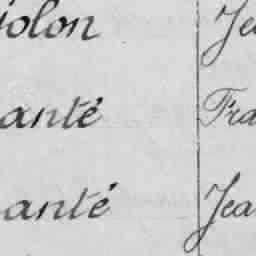 iolon Jea
anté Fra
anté Jea